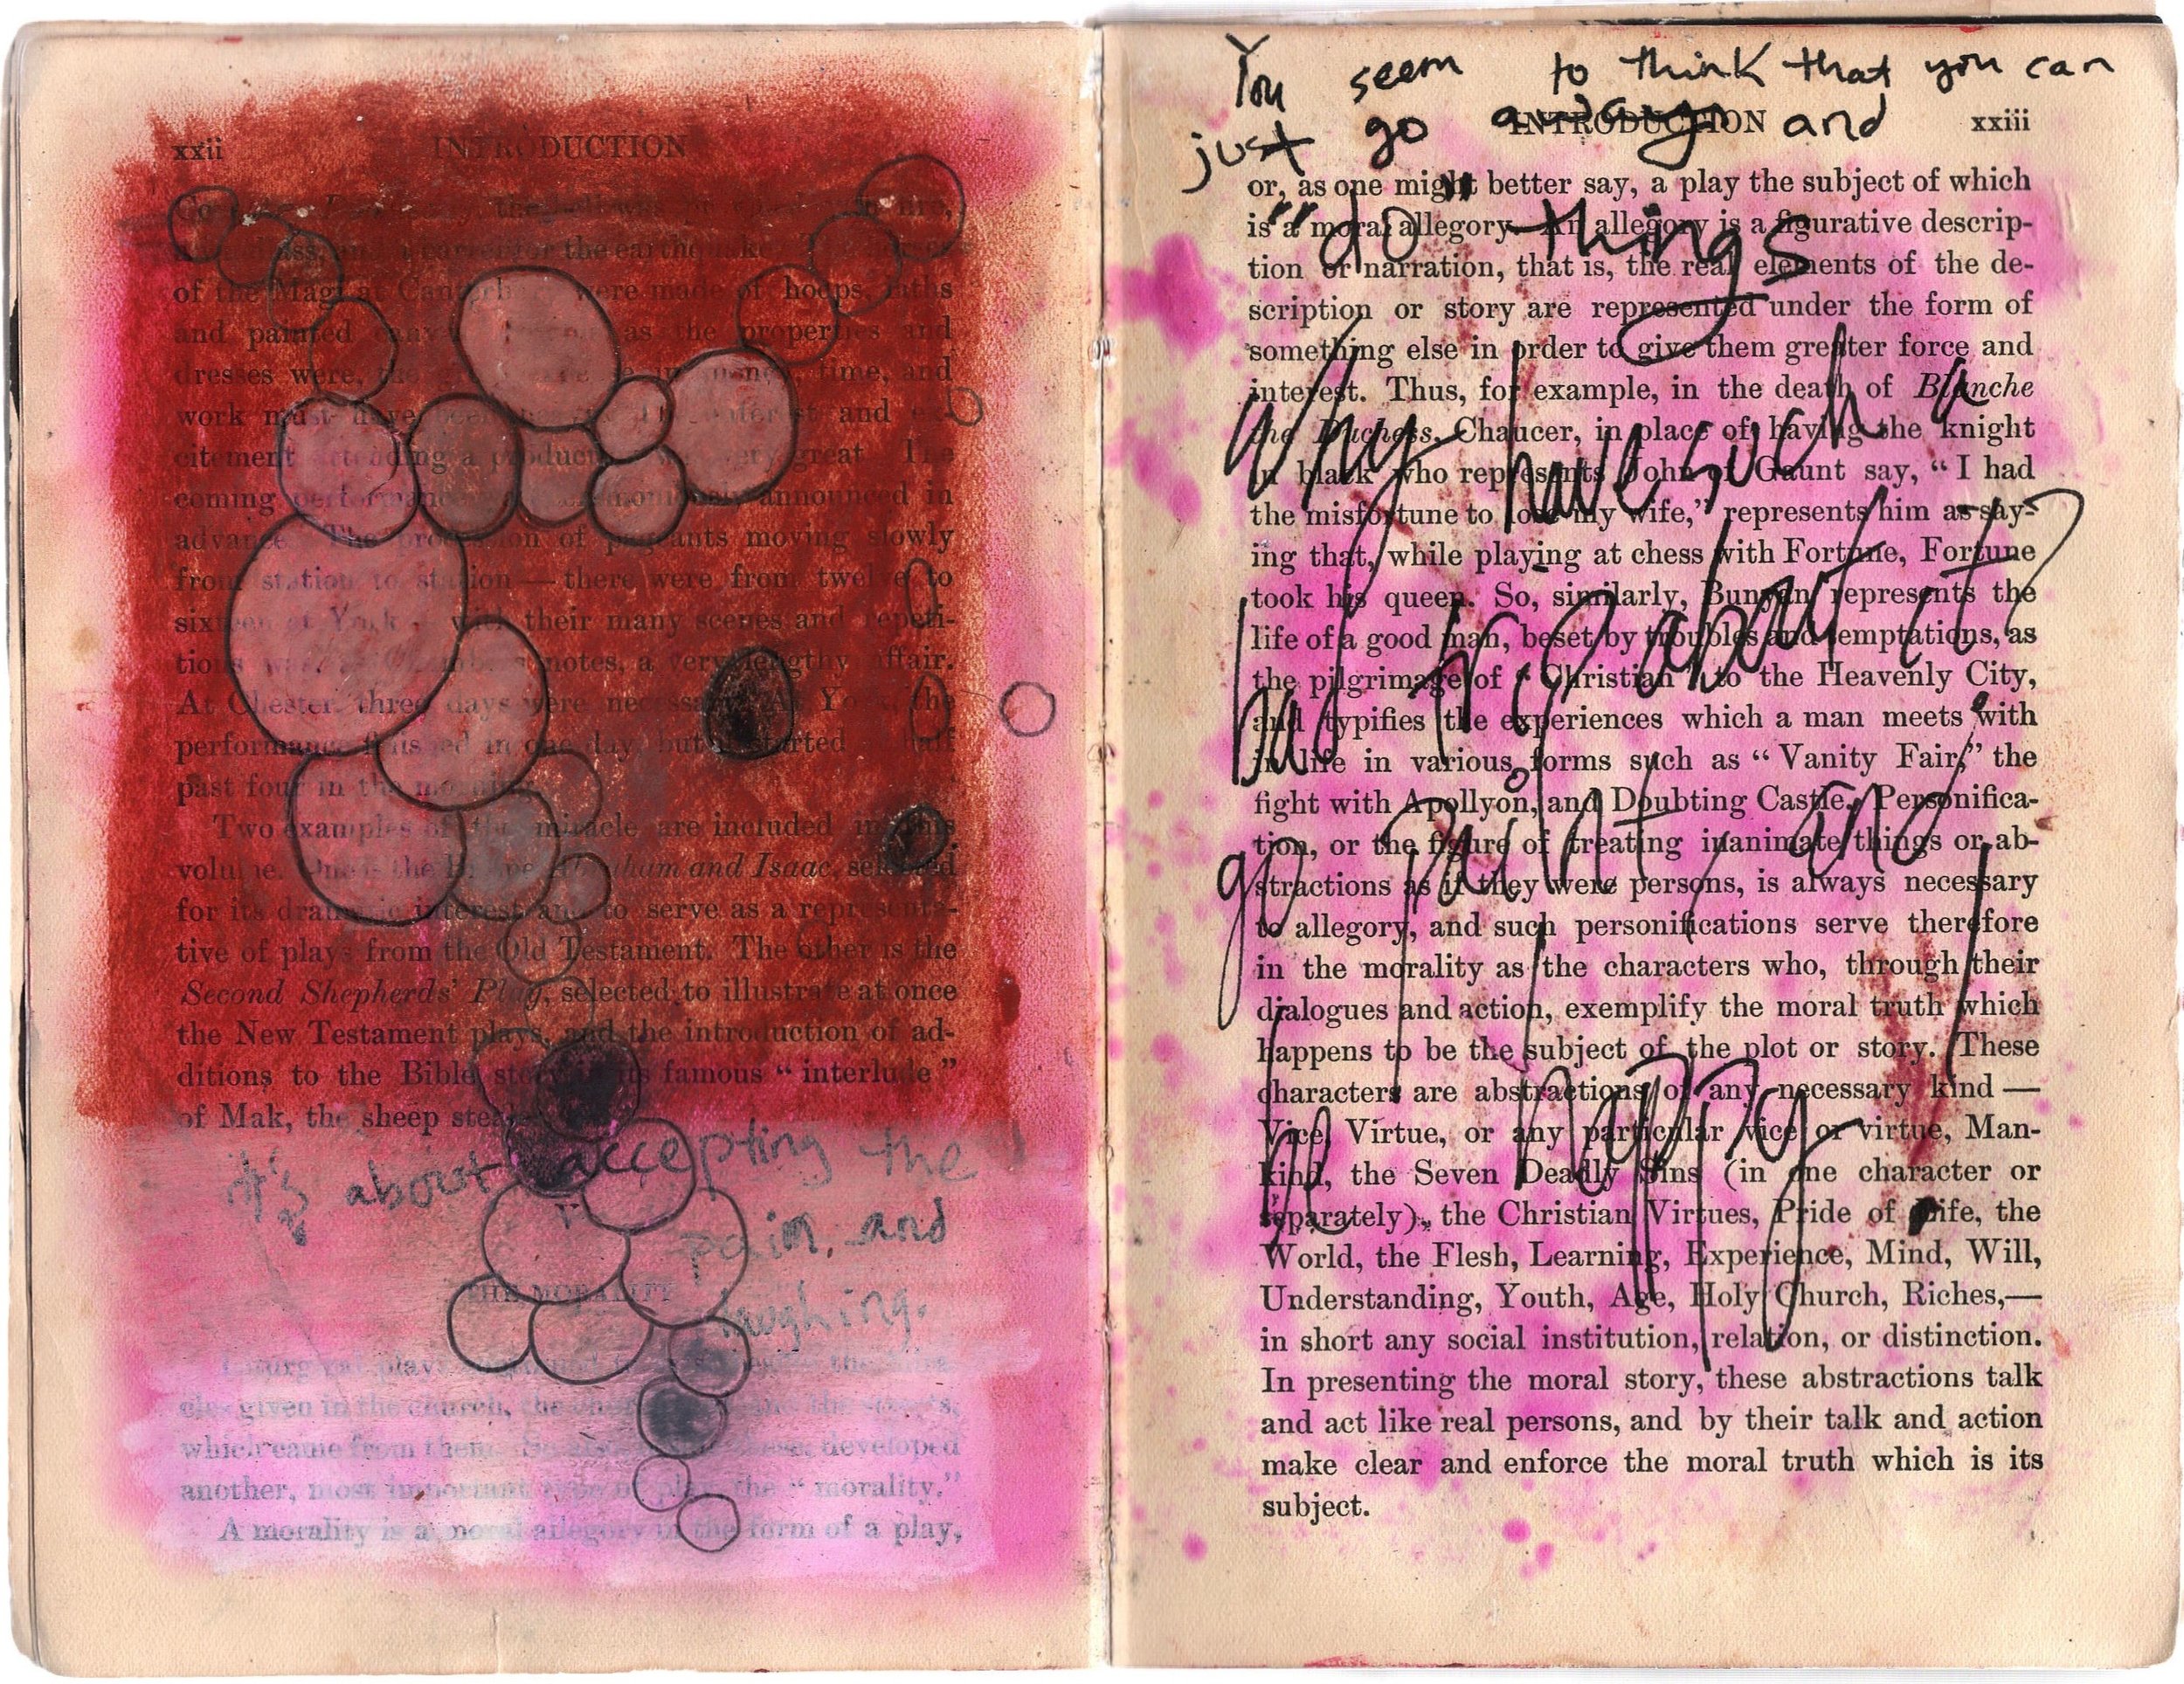 xxii INTRODUCTION
the earthquake
of the Magi at were made of hoops, laths
and painted as the properties and
dresses were, time, and
work must have been and ex-
citement attending a great. The
coming announced in
advance. The procession of pageants moving slowly
from station to station — there were from twelve to
sixteen at York with their many scenes and repeti-
tions notes, a very lengthy affair.
At Chester three days were necessary. At York, the
performance finished in one day, but started half
past four in the morning
Two examples of the miracle are included in this
volume. One is the Abraham and Isaac, selected
for its dramatic interest and to serve as a representa-
tive of plays from the Old Testament. The other is the
Second Shepherds' Play, selected to illustrate at once
the New Testament plays, and the introduction of ad-
ditions to the Bible story in its famous “ interlude ”
of Mak, the sheep
it's about accepting the
pain, and
laughing.
THE MORALITY
given in the church, the
which came from them developed
another, most important type of play, the “ morality.”
A morality is a moral allegory in the form of a play,
You seem to think that you can
just go away and
"do" things
Why have such a
bad trip about it?
go paint, and
be happy
INTRODUCTION xxiii
or, as one might better say, a play the subject of which
is a moral allegory. An allegory is a figurative descrip-
tion or narration, that is, the real elements of the de-
scription or story are represented under the form of
something else in order to give them greater force and
interest. Thus, for example, in the death of Blanche
the Duchess, Chaucer, in place of having the knight
in black who represents John of Gaunt say, “ I had
the misfortune to lose my wife,” represents him as say-
ing that, while playing at chess with Fortune, Fortune
took his queen. So, similarly, Bunyan represents the
life of a good man, beset by troubles and temptations, as
the pilgrimage of “ Christian ” to the Heavenly City,
and typifies the experiences which a man meets with
in life in various forms such as “ Vanity Fair,” the
fight with Apollyon, and Doubting Castle. Personifica-
tion, or the figure of treating inanimate things or ab-
stractions as if they were persons, is always necessary
to allegory, and such personifications serve therefore
in the morality as the characters who, through their
dialogues and action, exemplify the moral truth which
happens to be the subject of the plot or story. These
characters are abstractions of any necessary kind —
Vice, Virtue, or any particular vice or virtue, Man-
kind, the Seven Deadly Sins (in one character or
separately), the Christian Virtues, Pride of Life, the
World, the Flesh, Learning, Experience, Mind, Will,
Understanding, Youth, Age, Holy Church, Riches,—
in short any social institution, relation, or distinction.
In presenting the moral story, these abstractions talk
and act like real persons, and by their talk and action
make clear and enforce the moral truth which is its
subject.